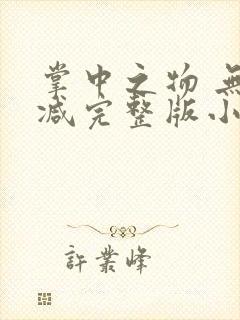 掌中之物 無
减完整版小
許業峰